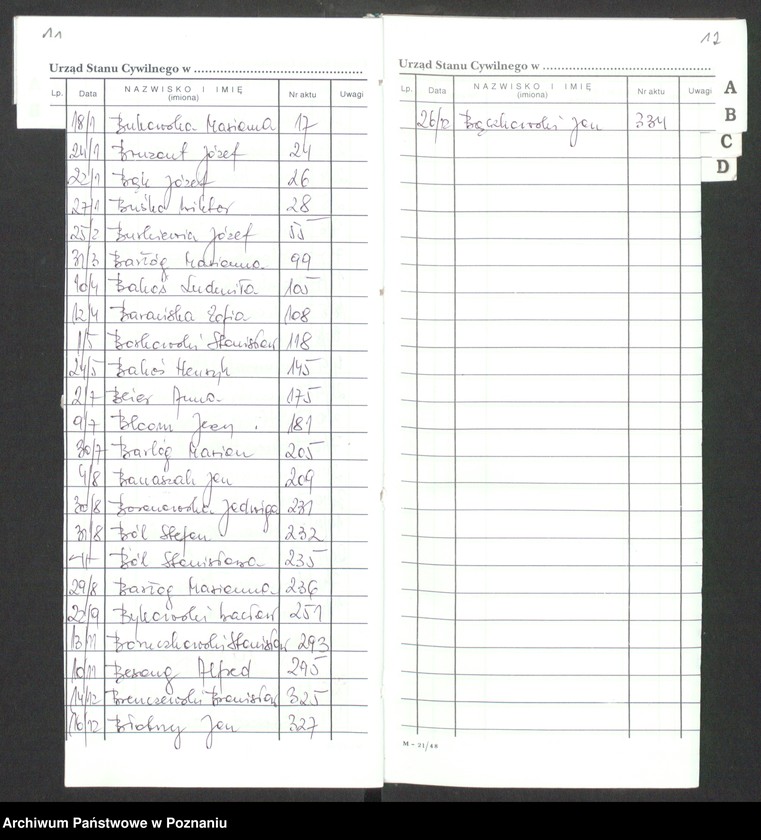 11
Urząd Stanu Cywilnego w
Lp. Data NAZWISKO I IMIĘ (imiona) Nr aktu Uwagi
18/1 Bukowska Marianna 17
24/1 Józef 24
22/1 Bąk Józef 26
27/1 Buśko Wiktor 28
25/2 Burkiewicz Józef 55
31/3 Bartóg Marianna 99
10/4 Bakoś Ludwika 105
12/4 Barańska Zofia 108
1/5 Borkowski Stanisław 118
24/5 Bakoś Henryk 145
2/7 Beier Anna 175
9/7 Jerzy 181
30/7 Bartóg Marian 205
4/8 Banaszak Jan 209
30/8 Jadwiga 231
31/8 Ból Stefan 232
-11- Ból Stanisława 235
29/8 Bartóg Marianna 236
22/9 Bykowski Wacław 251
13/11 Stanisław 293
10/11 Alfred 295
14/12 Brenczewski Bronisław 325
16/12 Jan 327
12
Urząd Stanu Cywilnego w
Lp. Data NAZWISKO I IMIĘ (imiona) Nr aktu Uwagi
26/12 Bączkowski Jan 334
A
B
C
D
M - 21/48
Archiwum Państwowe w Poznaniu